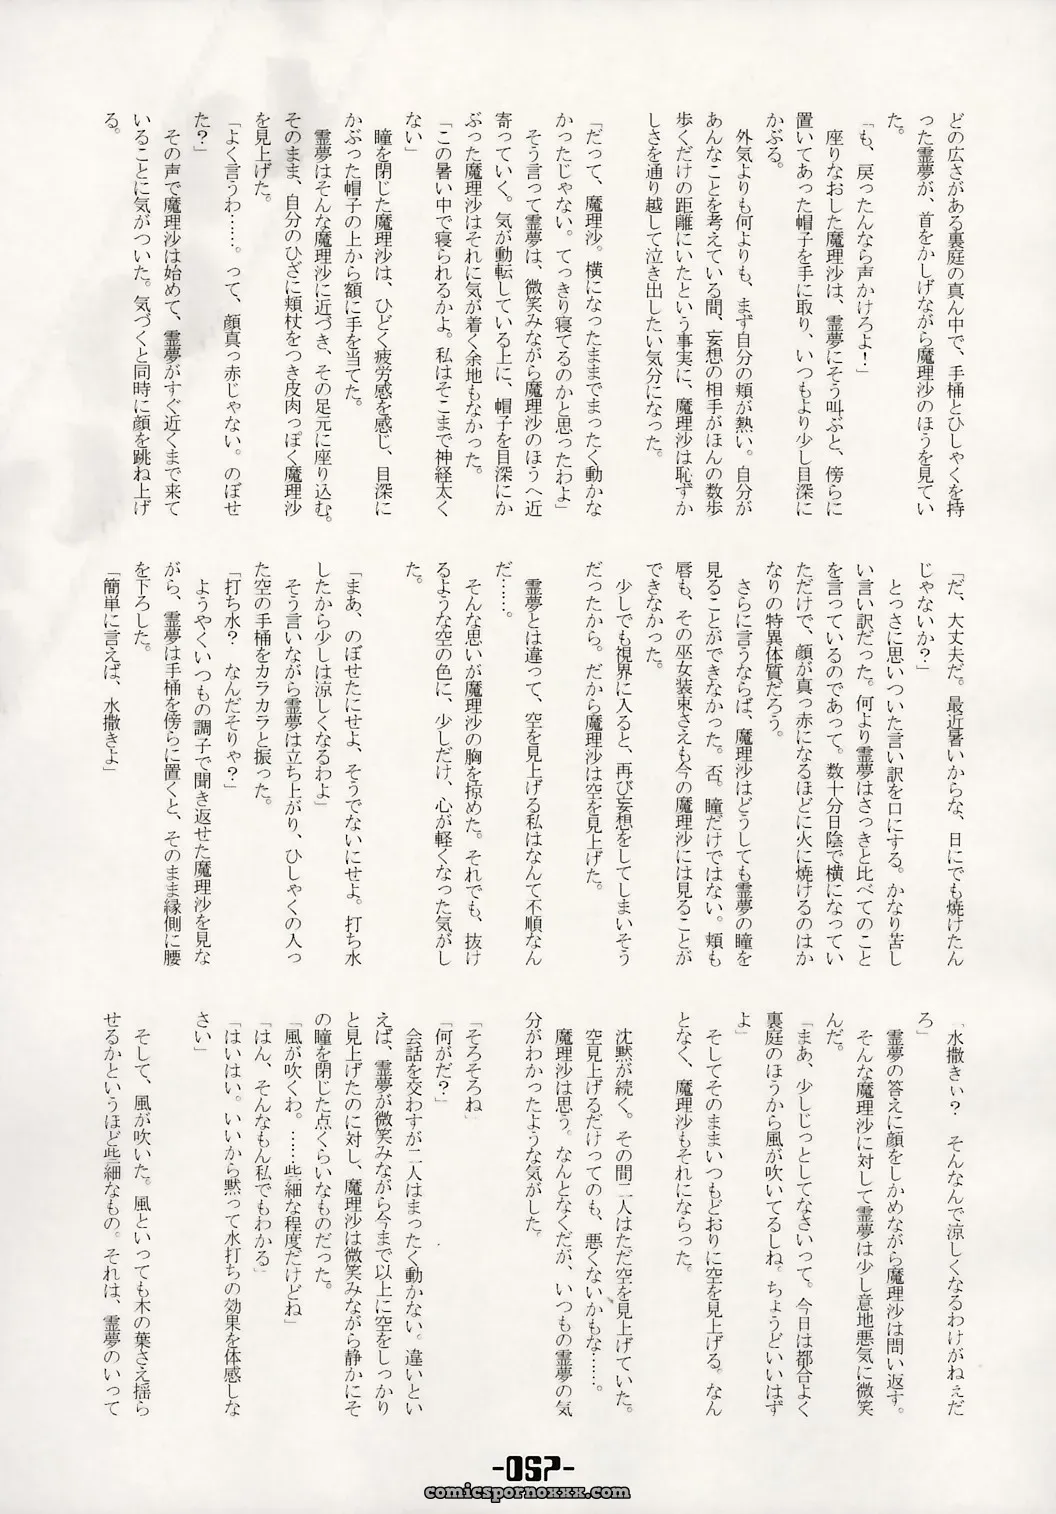 どの広さがある裏庭の真ん中で、手桶とひしゃくを持
った霊夢が、首をかしげながら魔理沙のほうを見てい
た。
「も、戻ったんなら声かけろよ！」
座りなおした魔理沙は、霊夢にそう叫ぶと、傍らに
置いてあった帽子を手に取り、いつもより少し目深に
かぶる。
外気よりも何よりも、まず自分の頬が熱い。自分が
あんなことを考えている間、妄想の相手がほんの数歩
歩くだけの距離にいたという事実に、魔理沙は恥ずか
しさを通り越して泣き出したい気分になった。
「だって、魔理沙。横になったままでまったく動かな
かったじゃない。てっきり寝てるのかと思ったわよ」
そう言って霊夢は、微笑みながら魔理沙のほうへ近
寄っていく。気が動転している上に、帽子を目深にか
ぶった魔理沙はそれに気が着く余地もなかった。
「この暑い中で寝られるかよ。私はそこまで神経太く
ない」
瞳を閉じた魔理沙は、ひどく疲労感を感じ、目深に
かぶった帽子の上から額に手を当てた。
霊夢はそんな魔理沙に近づき、その足元に座り込む。
そのまま、自分のひざに頬杖をつき皮肉っぽく魔理沙
を見上げた。
「よく言うわ……。って、顔真っ赤じゃない。のぼせ
た？」
その声で魔理沙は始めて、霊夢がすぐ近くまで来て
いることに気がついた。気づくと同時に顔を跳ね上げ
る。
「だ、大丈夫だ。最近暑いからな、日にでも焼けたん
じゃないか？」
とっさに思いついた言い訳を口にする。かなり苦し
い言い訳だった。何より霊夢はさっきと比べてのこと
を言っているのであって。数十分日陰で横になってい
ただけで、顔が真っ赤になるほどに火に焼けるのはか
なりの特異体質だろう。
さらに言うならば、魔理沙はどうしても霊夢の瞳を
見ることができなかった。否。瞳だけではない。頬も
唇も、その巫女装束さえも今の魔理沙には見ることが
できなかった。
少しでも視界に入ると、再び妄想をしてしまいそう
だったから。だから魔理沙は空を見上げた。
霊夢とは違って、空を見上げる私はなんて不順なん
だ……。
そんな思いが魔理沙の胸を掠めた。それでも、抜け
るような空の色に、少しだけ、心が軽くなった気がし
た。
「まあ、のぼせたにせよ、そうでないにせよ。打ち水
したから少しは涼しくなるわよ」
そう言いながら霊夢は立ち上がり、ひしゃくの入っ
た空の手桶をカラカラと振った。
「打ち水？　なんだそりゃ？」
ようやくいつもの調子で聞き返せた魔理沙を見な
がら、霊夢は手桶を傍らに置くと、そのまま縁側に腰
を下ろした。
「簡単に言えば、水撒きよ」
「水撒きぃ？　そんなんで涼しくなるわけがねぇだ
ろ」
霊夢の答えに顔をしかめながら魔理沙は問い返す。
そんな魔理沙に対して霊夢は少し意地悪気に微笑
んだ。
「まあ、少しじっとしてなさいって。今日は都合よく
裏庭のほうから風が吹いてるしね。ちょうどいいはず
よ」
そしてそのままいつもどおりに空を見上げる。なん
となく、魔理沙もそれにならった。
沈黙が続く。その間二人はただ空を見上げていた。
空見上げるだけってのも、悪くないかもな……。
魔理沙は思う。なんとなくだが、いつもの霊夢の気
分がわかったような気がした。
「そろそろね」
「何がだ？」
会話を交わすが二人はまったく動かない。違いとい
えば、霊夢が微笑みながら今まで以上に空をしっかり
と見上げたのに対し、魔理沙は微笑みながら静かにそ
の瞳を閉じた点くらいなものだった。
「風が吹くわ。……些細な程度だけどね」
「はん、そんなもん私でもわかる」
「はいはい。いいから黙って水打ちの効果を体感しな
さい」
そして、風が吹いた。風といっても木の葉さえ揺ら
せるかというほど些細なもの。それは、霊夢のいって
-057-
comicspornoxxx.com